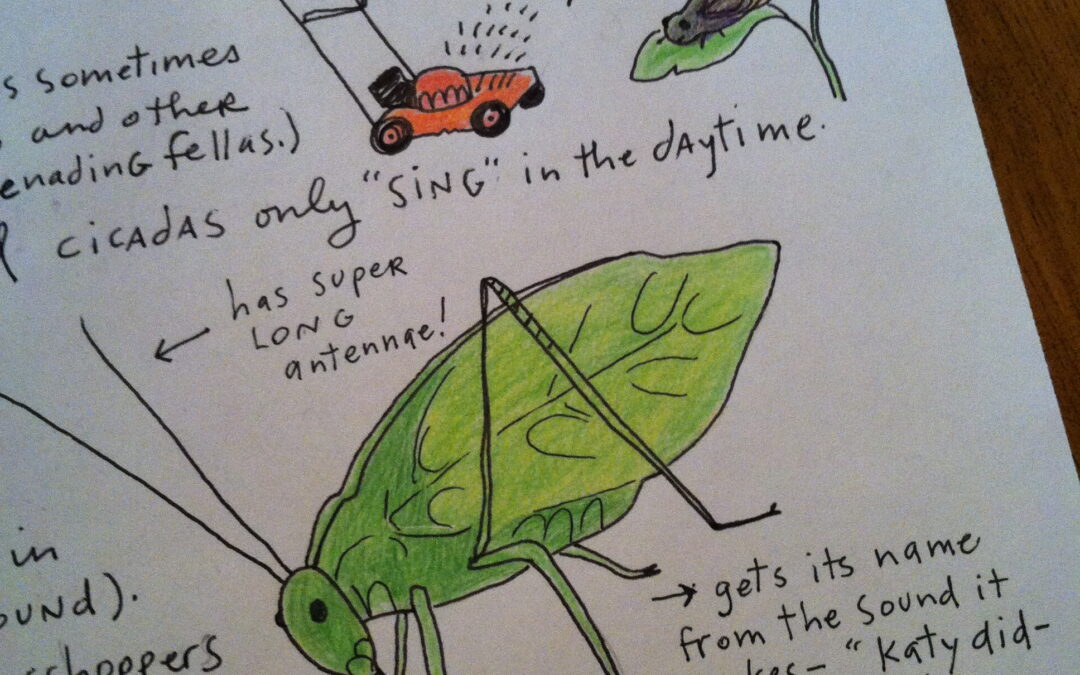 s sometimes
and other
enading fellas.)
cicadas only "SING" in the daytime.
has super
LONG
antennae!
in
OUND).
sshoppers
→ gets its name
from the sound it
kes- "Katy did-